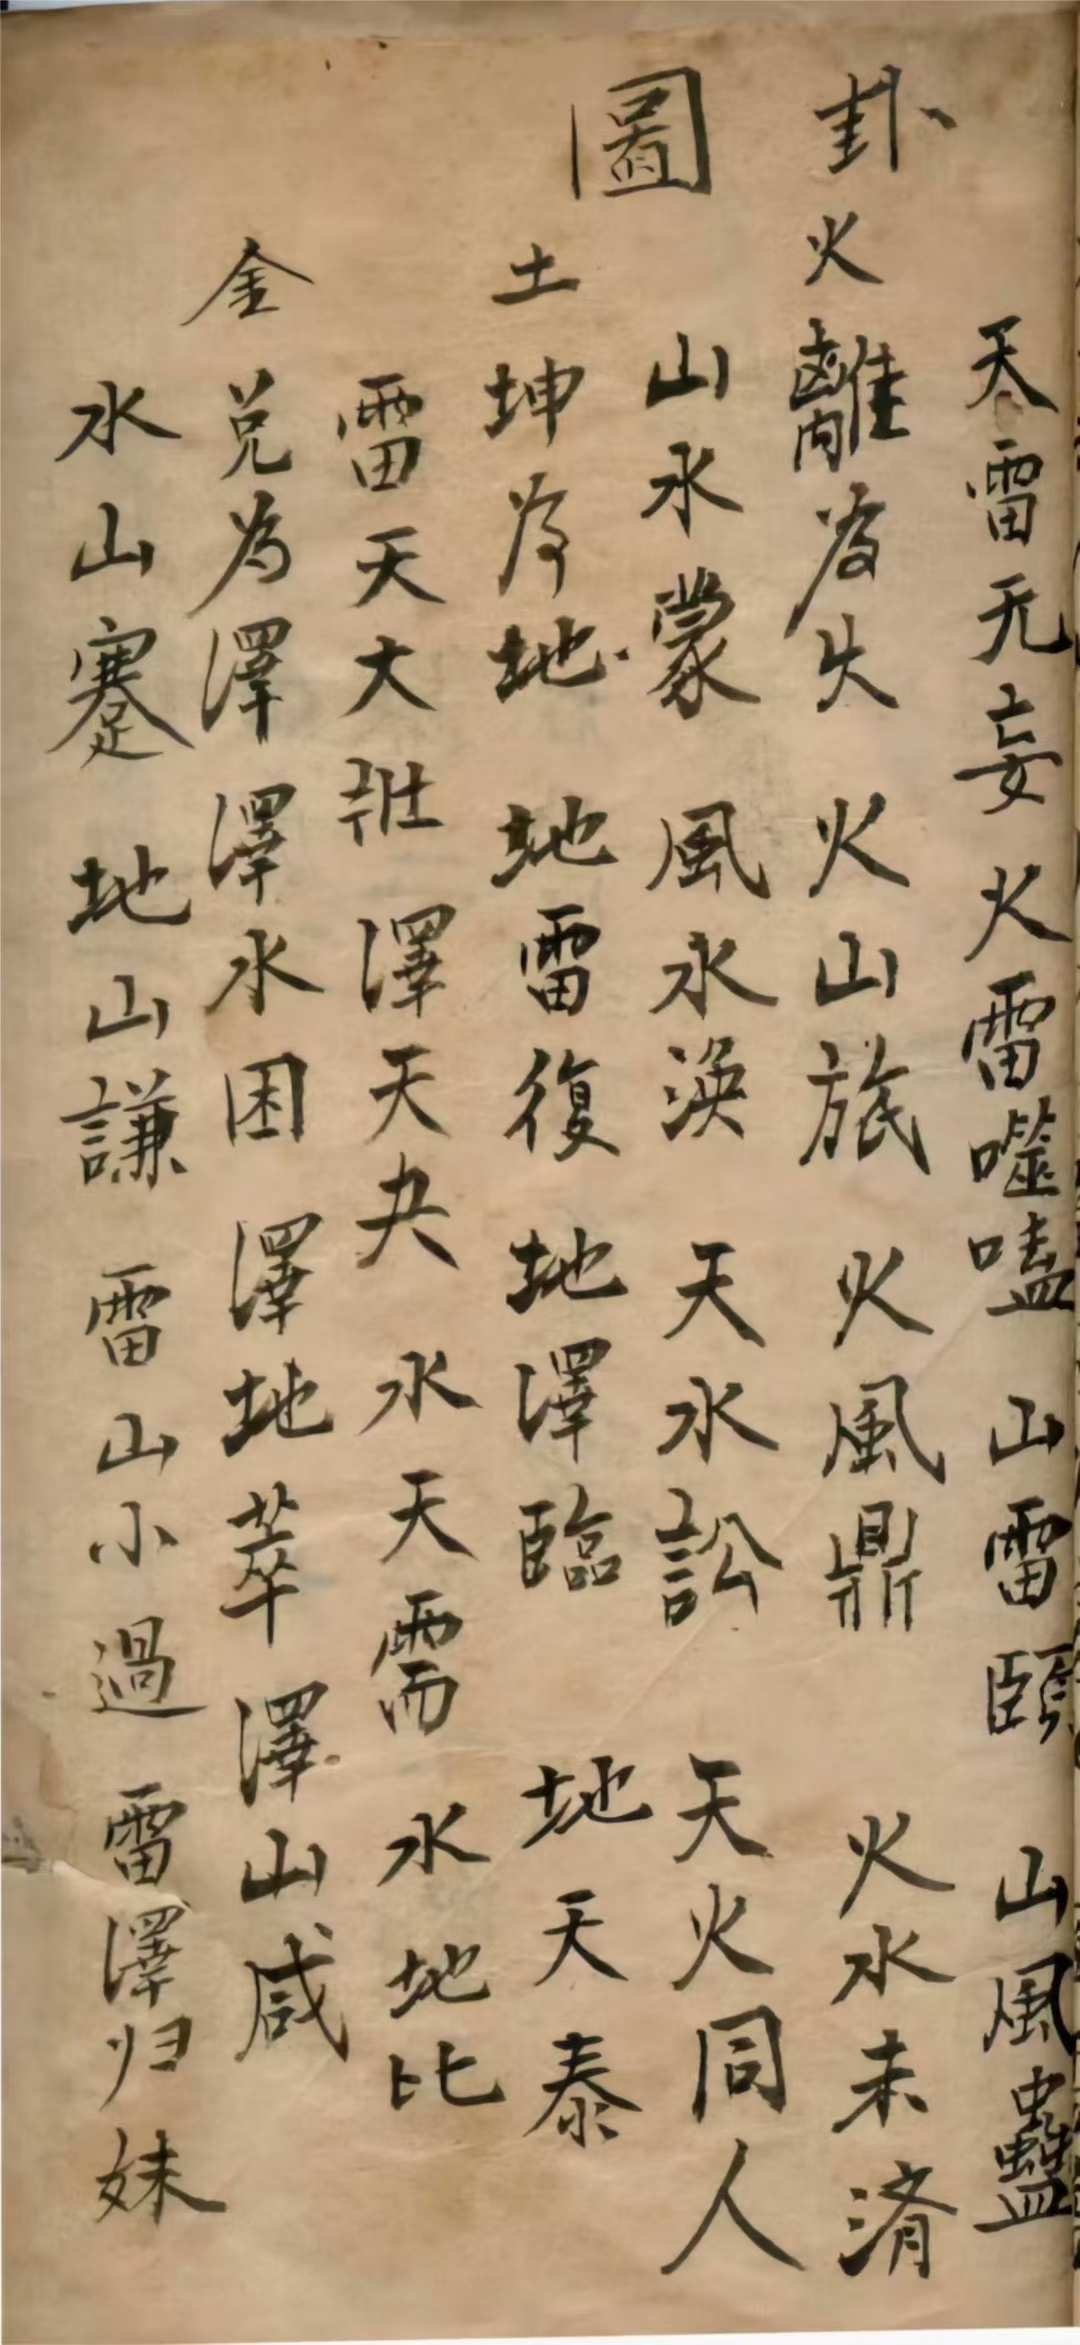 卦圖
天雷无妄 火雷噬嗑 山雷頤 山風蠱
火 離為火 火山旅 火風鼎 火水未済
山水蒙 風水渙 天水訟 天火同人
土 坤為地 地雷復 地澤臨 地天泰
雷天大壯 澤天夬 水天需 水地比
金 兌為澤 澤水困 澤地萃 澤山咸
水山蹇 地山謙 雷山小過 雷澤归妹